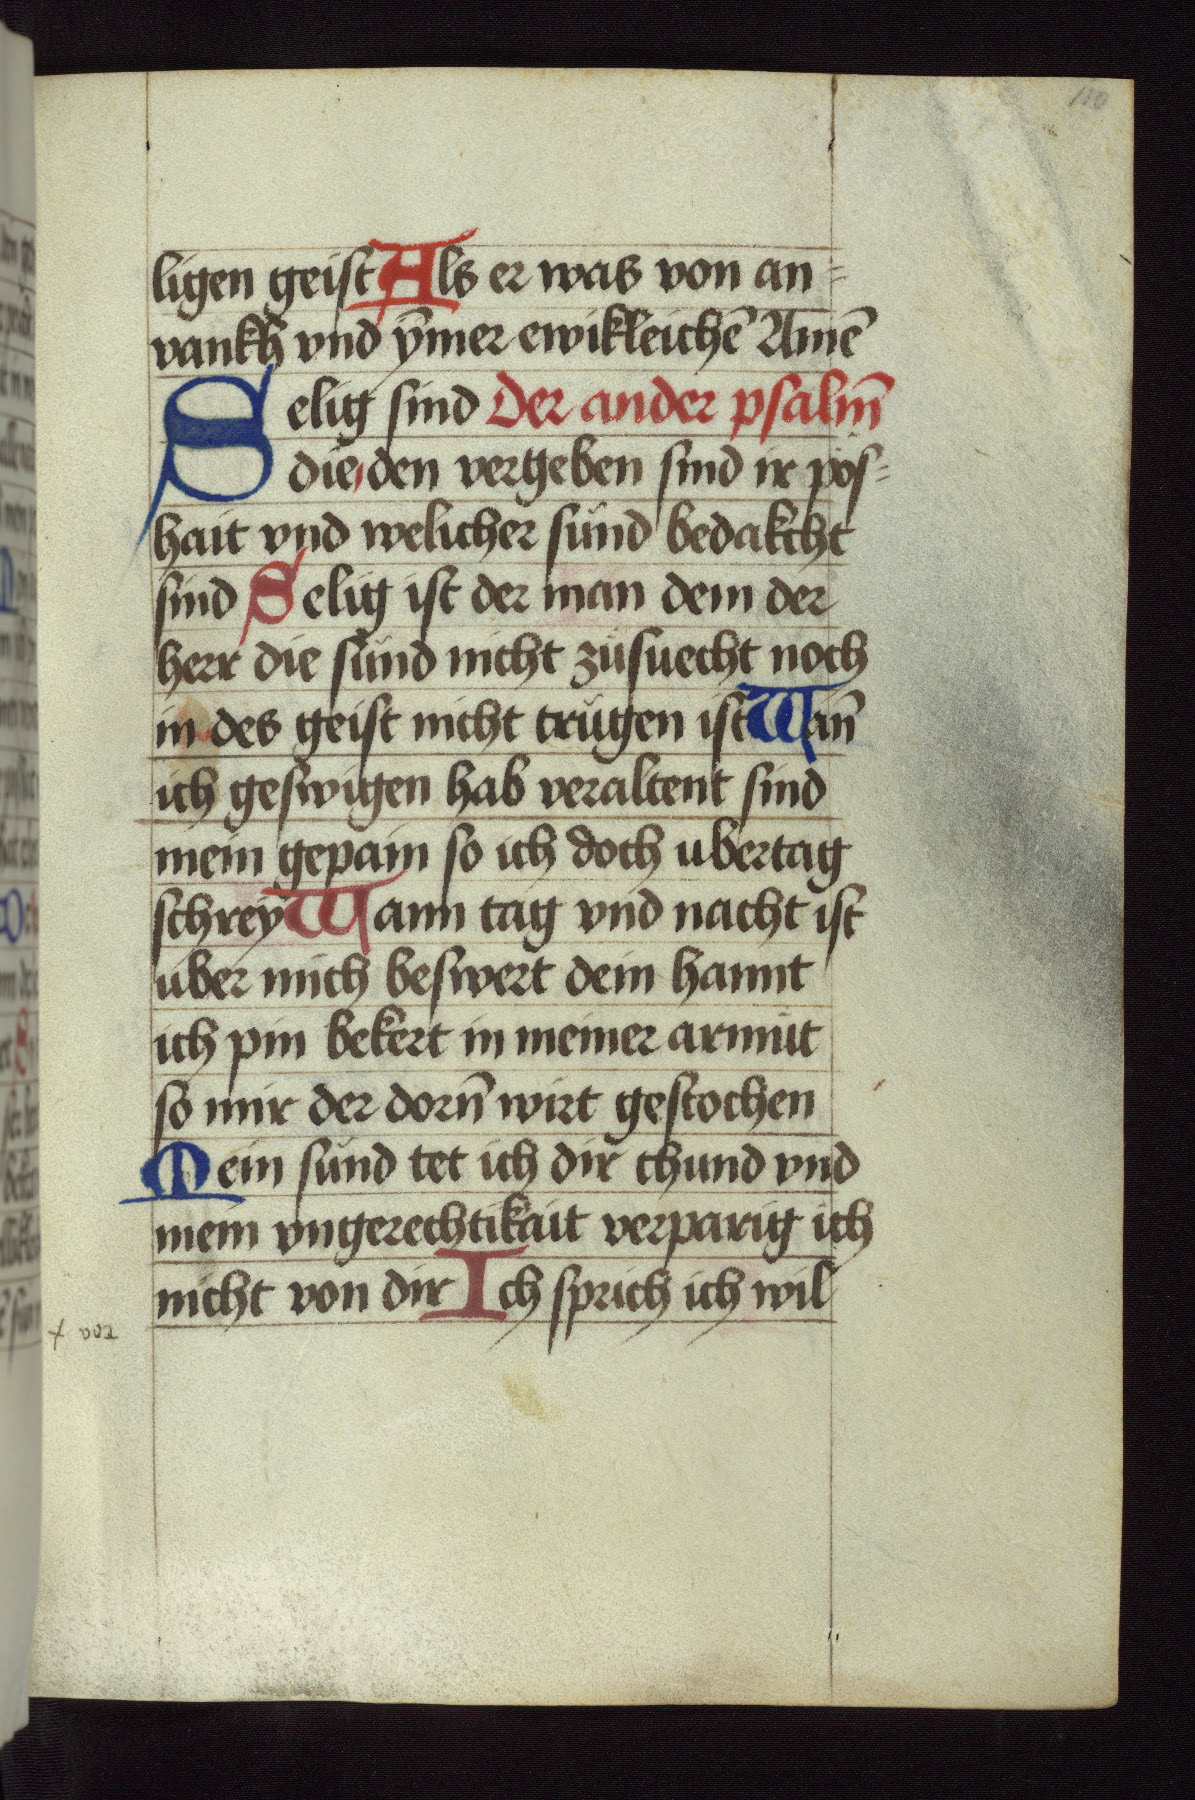 110
ligen geist Als er was von an=
vankh vnd ÿmer ewikleichē Amē
Selig sind Der ander psalm̄
die den vergeben sind ir pös=
hait vnd welicher sünd bedakcht
sind Selig ist der man dem der
herr die sünd nicht zůsuecht noch
in des geist nicht trůgen ist Wan̄
ich geswigen hab veraltent sind
mein gepain so ich doch ubertag
schreÿ Wann tag vnd nacht ist
über mich beswert dein hannt
ich pin bekert in meiner armůt
so mir der dorn̄ wirt gestochen
Mein sünd tet ich dir chund vnd
mein vngerechtikait verparig ich
nicht von dir Ich sprich ich wil